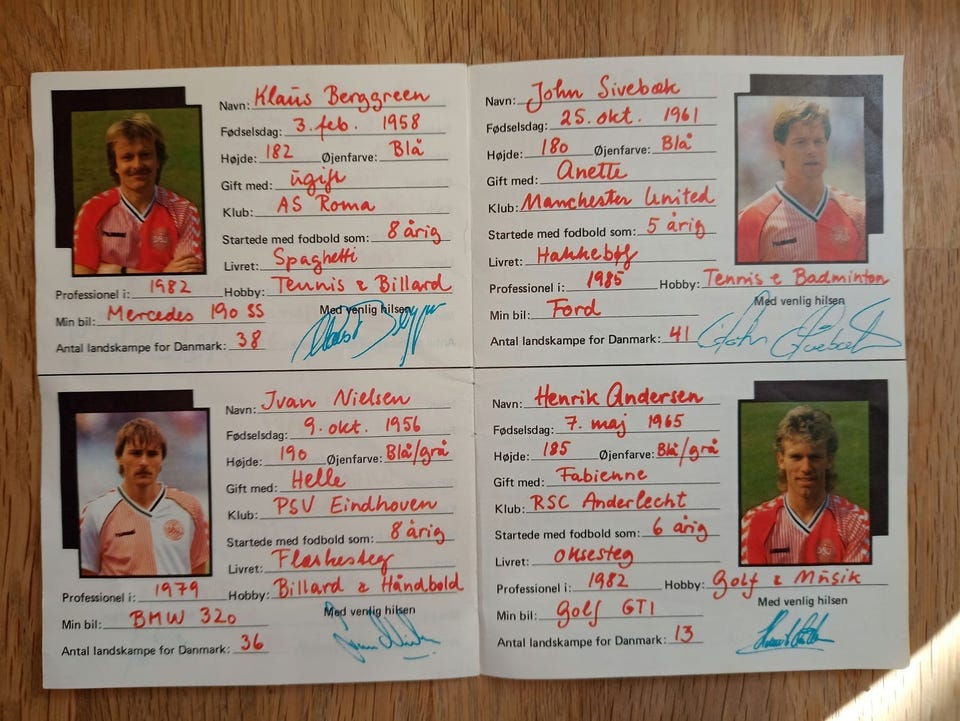 Navn: Klaus Berggreen
Fødselsdag: 3. feb. 1958
Højde: 182 Øjenfarve: Blå
Gift med: ugift
Klub: AS Roma
Startede med fodbold som: 8 årig
Livret: Spaghetti
Professionel i: 1982 Hobby: Tennis & Billard
Min bil: Mercedes 190 SS Med venlig hilsen
Antal landskampe for Danmark: 38
Navn: John Sivebæk
Fødselsdag: 25. okt. 1961
Højde: 180 Øjenfarve: Blå
Gift med: Anette
Klub: Manchester United
Startede med fodbold som: 5 årig
Livret: Hakkebøf
Professionel i: 1985 Hobby: Tennis & Badminton
Min bil: Ford Med venlig hilsen
Antal landskampe for Danmark: 41
Navn: Ivan Nielsen
Fødselsdag: 9. okt. 1956
Højde: 190 Øjenfarve: Blå/grå
Gift med: Helle
Klub: PSV Eindhoven
Startede med fodbold som: 8 årig
Livret: Flæskesteg
Professionel i: 1979 Hobby: Billard & Håndbold
Min bil: BMW 320 Med venlig hilsen
Antal landskampe for Danmark: 36
Navn: Henrik Andersen
Fødselsdag: 7. maj 1965
Højde: 185 Øjenfarve: Blå/grå
Gift med: Fabienne
Klub: RSC Anderlecht
Startede med fodbold som: 6 årig
Livret: Oksesteg
Professionel i: 1982 Hobby: Golf & Musik
Min bil: Golf GTI Med venlig hilsen
Antal landskampe for Danmark: 13